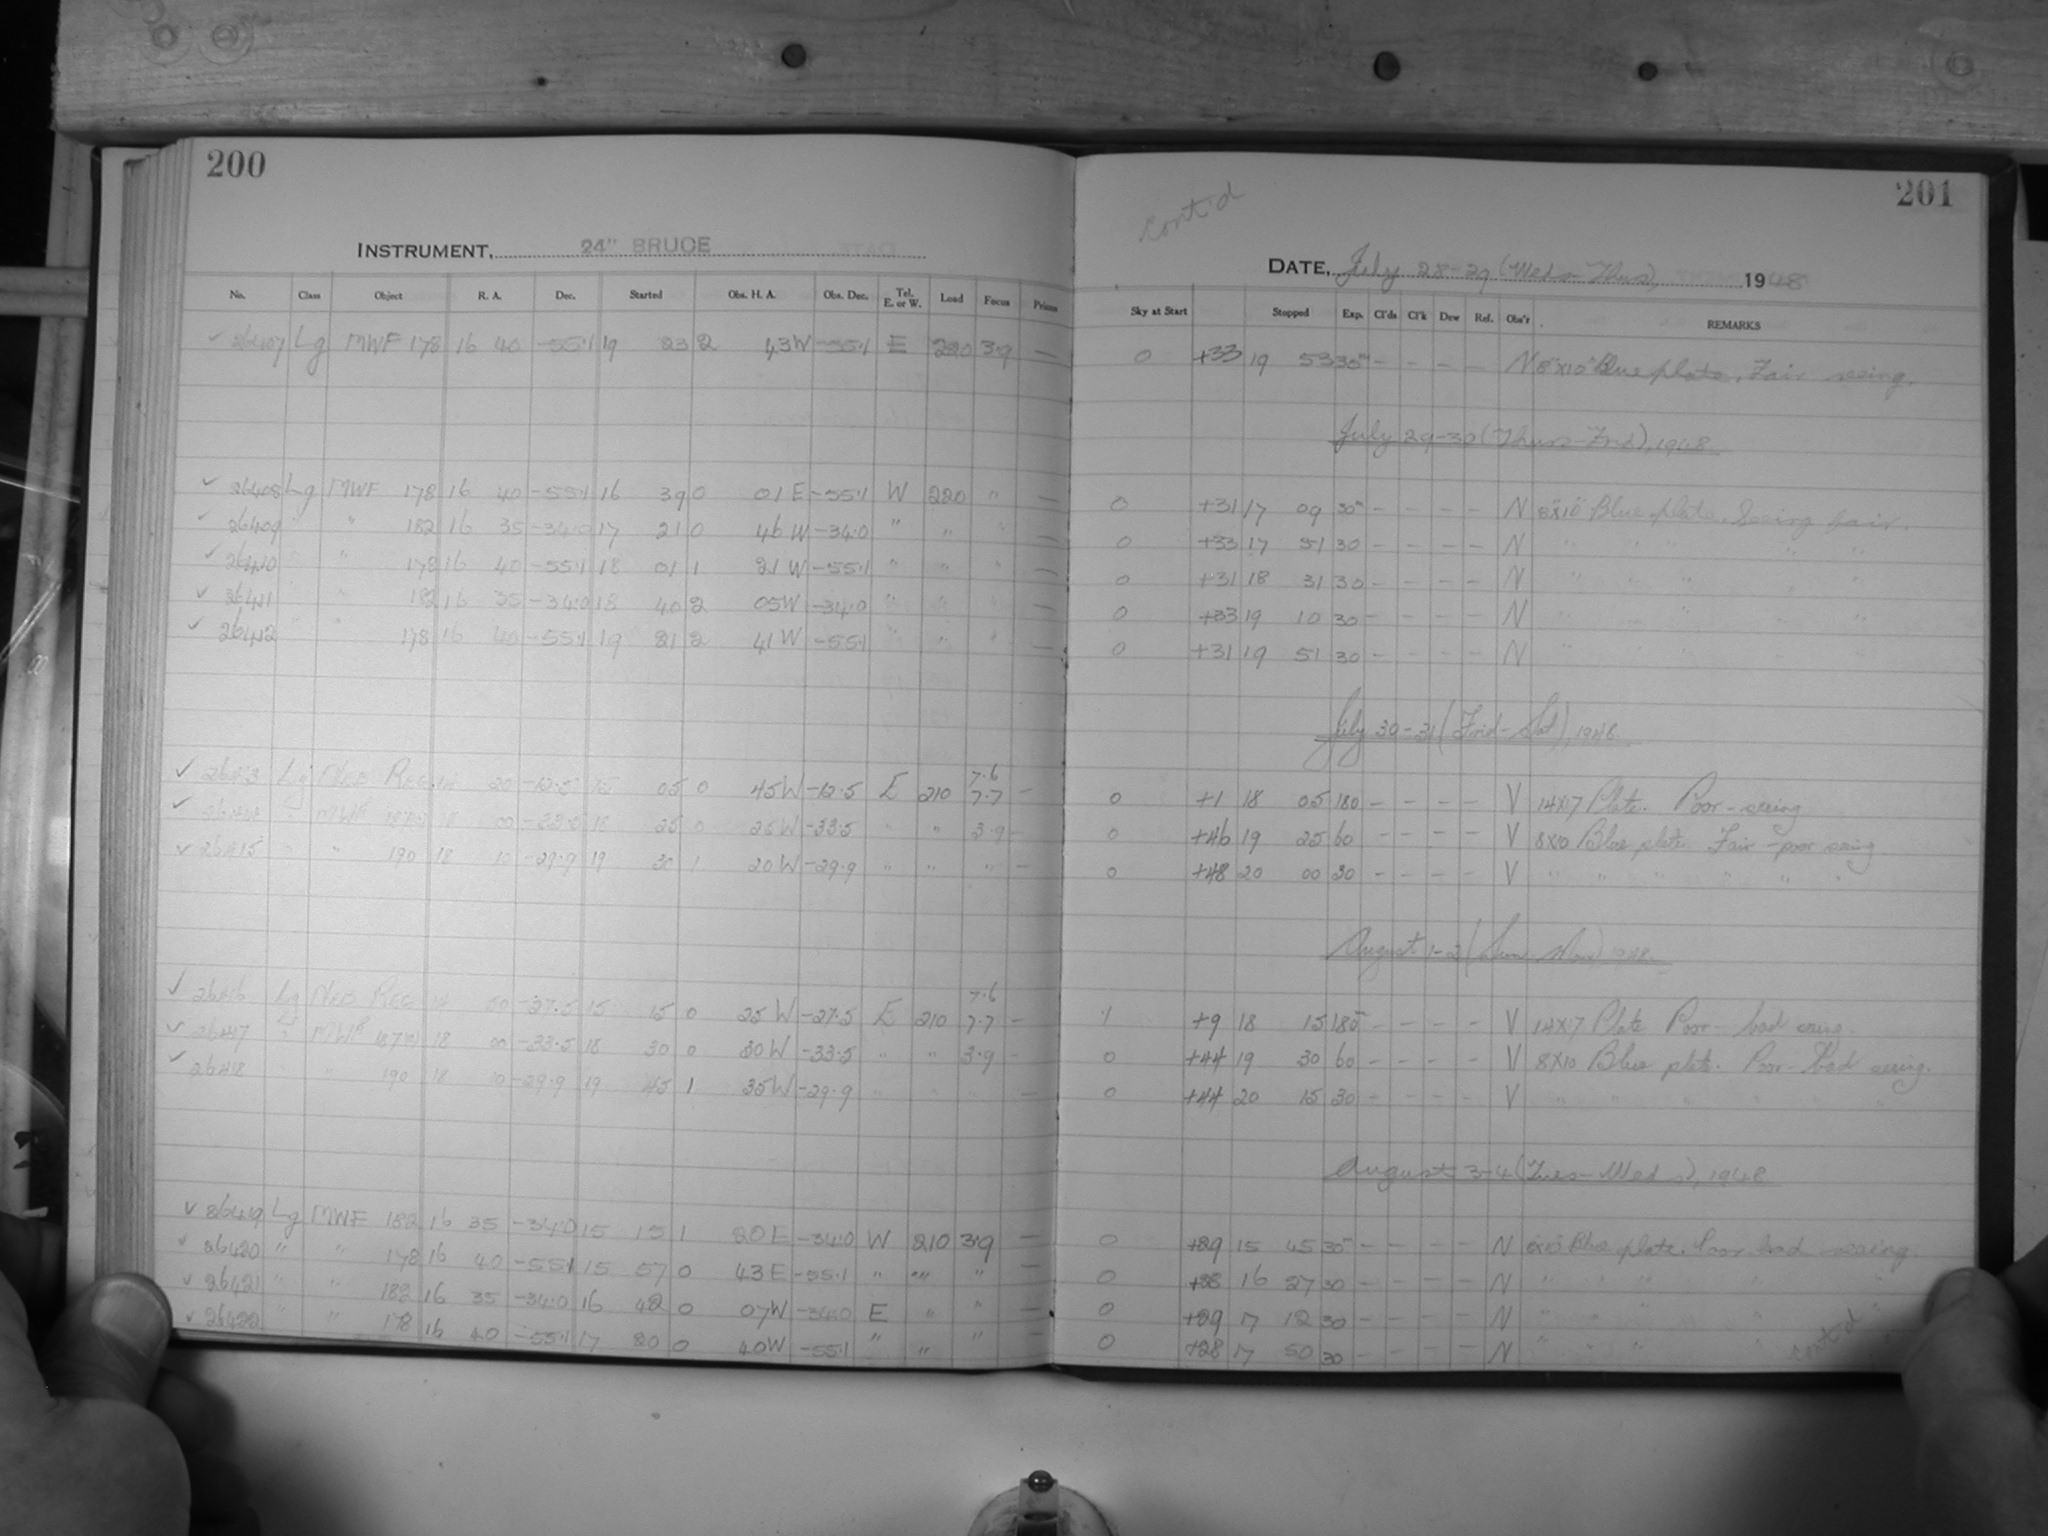 200
INSTRUMENT, 24" BRUCE
No. Class Object R. A. Dec. Started Obs. H. A. Obs. Dec. Tel. E. or W. Load Focus Prisms
26407 Lg MWF 178 16 40 -55.1 19 23 2 43 W -55.1 E 220 3.9 —
26408 Lg MWF 178 16 40 -55.1 16 39 0 01 E -55.1 W 220 " —
26409 " " 182 16 35 -34.0 17 21 0 46 W -34.0 " " " —
26410 " " 178 16 40 -55.1 18 01 1 21 W -55.1 " " " —
26411 " " 182 16 35 -34.0 18 40 2 05 W -34.0 " " " —
26412 " " 178 16 40 -55.1 19 21 2 41 W -55.1 " " " —
7.6
26413 Lg REG. 14 20 -12.5 15 05 0 45 W -12.5 E 210 7.7 -
26414 " MWF 18 00 -33.5 18 25 0 25 W -33.5 " " 3.9 -
26415 " " 190 18 10 -29.9 19 30 1 20 W -29.9 " " " -
7.6
26416 Lg REG. 14 50 -27.5 15 15 0 25 W -27.5 E 210 7.7 -
26417 " MWF 18 00 -33.5 18 30 0 30 W -33.5 " " 3.9 -
26418 " " 190 18 10 -29.9 19 45 1 35 W -29.9 " " " -
26419 Lg MWF 182 16 35 -34.0 15 15 1 20 E -34.0 W 210 3.9 —
26420 " " 178 16 40 -55.1 15 57 0 43 E -55.1 " " " —
26421 " " 182 16 35 -34.0 16 42 0 07 W -34.0 E " " —
26422 " " 178 16 40 -55.1 17 20 0 40 W -55.1 " " " —
cont'd
201
DATE, July 28-29 (Weds-Thurs), 1948
Sky at Start Stopped Exp. Cl'ds Cl'k Dew Ref. Obs'r. REMARKS
0 +33 19 53 30m - - - - N 8"x10" Blue plate. Fair seeing.
July 29-30 (Thurs-Frid), 1948
0 +31 17 09 30m - - - - N 8"x10" Blue plate. Seeing fair.
0 +33 17 51 30 - - - - N " " " " "
0 +31 18 31 30 - - - - N " " " " "
0 +33 19 10 30 - - - - N " " " " "
0 +31 19 51 30 - - - - N " " " " "
July 30-31 (Frid-Sat), 1948
0 +1 18 05 180 - - - - V 14x17 Plate. Poor-seeing
0 +46 19 25 60 - - - - V 8x10 Blue plate. Fair-poor seeing
0 +48 20 00 30 - - - - V " " " " " "
August 1-2 (Sun-Mon) 1948
1 +9 18 15 180 - - - - V 14x17 Plate Poor-bad seeing.
0 +44 19 30 60 - - - - V 8x10 Blue plate. Poor-bad seeing.
0 +44 20 15 30 - - - - V " " " " " "
August 3-4 (Tues-Weds), 1948
0 +29 15 45 30m - - - - N 8"x10" Blue plate. Poor-bad seeing.
0 +28 16 27 30 - - - - N " " " " "
0 +29 17 12 30 - - - - N " " " "
0 +28 17 50 30 - - - - N " " " "
cont'd